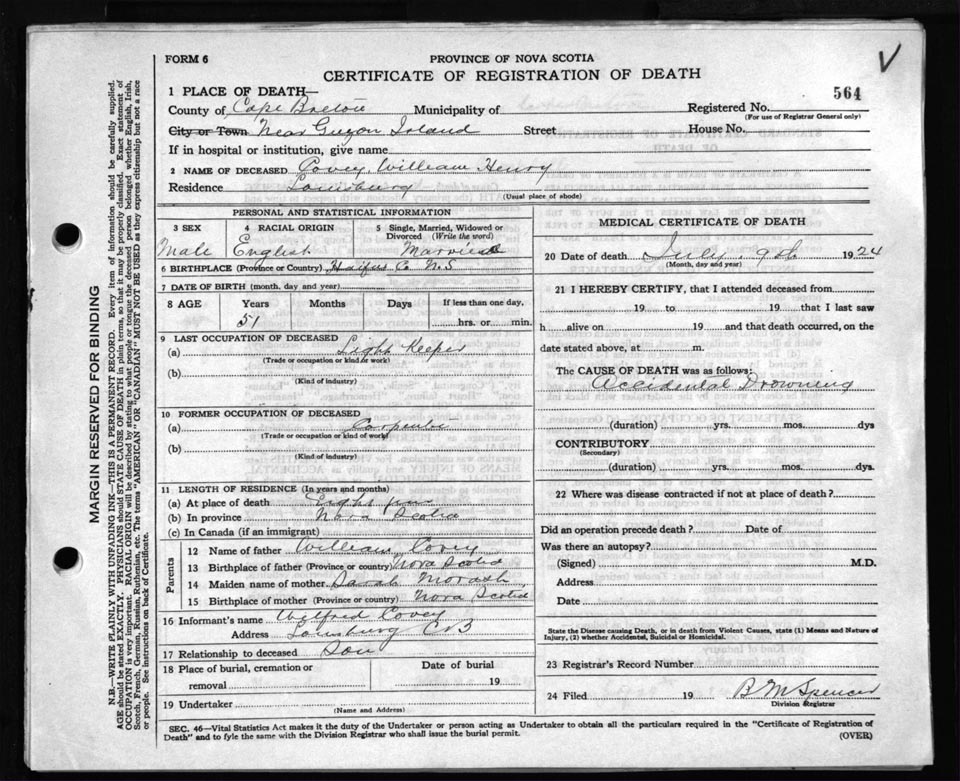 FORM 6
PROVINCE OF NOVA SCOTIA
CERTIFICATE OF REGISTRATION OF DEATH
V
564
1 PLACE OF DEATH—
County of Cape Breton Municipality of Registered No.
(For use of Registrar General only)
City or Town Near Guyon Island Street House No.
If in hospital or institution, give name
2 NAME OF DECEASED Covey, William Henry
Residence Louisburg
(Usual place of abode)
PERSONAL AND STATISTICAL INFORMATION
3 SEX 4 RACIAL ORIGIN 5 Single, Married, Widowed or Divorced (Write the word)
Male English Married
6 BIRTHPLACE (Province or Country) Haifus Co. N.S
7 DATE OF BIRTH (month, day and year)
8 AGE Years Months Days If less than one day,
51 hrs. or min.
9 LAST OCCUPATION OF DECEASED
(a) Light Keeper
(Trade or occupation or kind of work)
(b)
(Kind of industry)
10 FORMER OCCUPATION OF DECEASED
(a) Carpenter
(Trade or occupation or kind of work)
(b)
(Kind of industry)
11 LENGTH OF RESIDENCE (In years and months)
(a) At place of death Eight yrs
(b) In province Nova Scotia
(c) In Canada (if an immigrant)
Parents
12 Name of father William Covey
13 Birthplace of father (Province or country) Nova Scotia
14 Maiden name of mother Sarah Morash
15 Birthplace of mother (Province or country) Nova Scotia
16 Informant's name Wilfred Covey
Address Louisburg CB
17 Relationship to deceased Son
18 Place of burial, cremation or Date of burial
removal 19
19 Undertaker
(Name and Address)
MEDICAL CERTIFICATE OF DEATH
20 Date of death July 9th 1924
(Month, day and year)
21 I HEREBY CERTIFY, that I attended deceased from
19 to 19 that I last saw
h alive on 19 and that death occurred, on the
date stated above, at m.
The CAUSE OF DEATH was as follows:
Accidental Drowning
(duration) yrs. mos. dys
CONTRIBUTORY
(Secondary)
(duration) yrs. mos. dys.
22 Where was disease contracted if not at place of death?
Did an operation precede death? Date of
Was there an autopsy?
(Signed) M.D.
Address
Date
State the Disease causing Death, or in death from Violent Causes, state (1) Means and Nature of
Injury, (2) whether Accidental, Suicidal or Homicidal.
23 Registrar's Record Number
24 Filed 19 B M Spencer
Division Registrar
SEC. 46—Vital Statistics Act makes it the duty of the Undertaker or person acting as Undertaker to obtain all the particulars required in the "Certificate of Registration of
Death" and to fyle the same with the Division Registrar who shall issue the burial permit. (OVER)
MARGIN RESERVED FOR BINDING
N.B.—WRITE PLAINLY WITH UNFADING INK—THIS IS A PERMANENT RECORD. Every item of information should be carefully supplied.
AGE should be stated EXACTLY. PHYSICIANS should STATE CAUSE OF DEATH in plain terms, so that it may be properly classified. Exact statement of
OCCUPATION is very important. RACIAL ORIGIN will be described by stating to what people or tongue the deceased person belonged whether English, Irish,
Scotch, French, German, Russian, Ruthenian, etc. The terms "AMERICAN" OR "CANADIAN" MUST NOT BE USED as they express citizenship but not a race
or people. See instructions on back of Certificate.